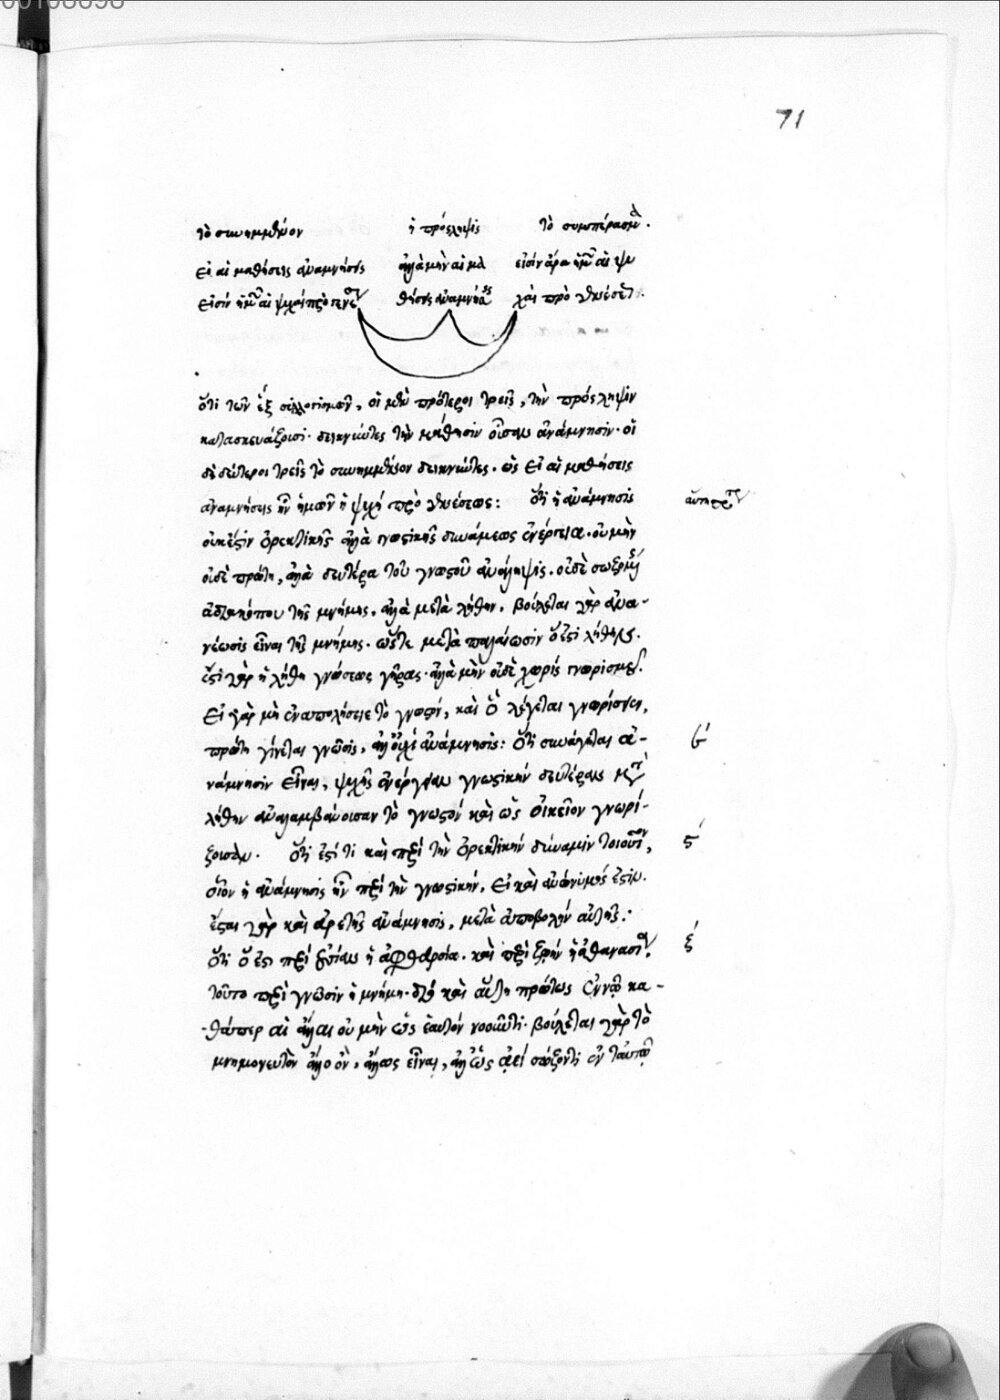 71
τὸ συνημμένον ἡ πρόσληψις τὸ συμπέρασμα.
εἰ αἱ μαθήσεις ἀναμνήσεις ἀλλὰ μὴν αἱ μα εἰσὶν ἄρα ἡμῶν αἱ ψυ
εἰσὶν ἡμῶν αἱ ψυχαὶ πρὸ γενέσεως θήσεις ἀναμνήσεις χαὶ πρὸ γενέσεως.
ὅτι τῶν ἓξ συλλογισμῶν, οἱ μὲν πρότεροι τρεῖς, τὴν πρόσληψιν
κατασκευάζουσι· δεικνύντες τὴν μάθησιν οὖσαν ἀνάμνησιν· οἱ
δὲ δεύτεροι τρεῖς τὸ συνημμένον δεικνύντες. ὡς εἰ αἱ μαθήσεις
ἀναμνήσεις ἦν ἡμῶν ἡ ψυχὴ πρὸ γενέσεως: ὅτι ἡ ἀνάμνησις
οὐκ ἔστιν ὀρεκτικῆς ἀλλὰ γνωστικῆς δυνάμεως ἐνέργεια. οὐ μὴν
οὐδὲ πρώτη, ἀλλὰ δευτέρα τοῦ γνωστοῦ ἀνάληψις. οὐδὲ σωζομένης
ἀδιακόπου τῆς μνήμης, ἀλλὰ μετὰ λήθην. βούλεται γὰρ ἀνα-
νέωσις εἶναι τῆς μνήμης. ὥστε μετὰ παλαίωσιν ὅ ἐστι λήθης.
ἔστι γὰρ ἡ λήθη γνώσεως γῆρας· ἀλλὰ μὴν οὐδὲ χωρὶς γνωρισμοῦ.
εἰ γὰρ μὴ ἐναπολήσειε τὸ γνωστόν, καὶ ὃ λέγεται γνωρίσειεν,
πρώτη γίνεται γνῶσις, ἀλλ' οὐχὶ ἀνάμνησις: ὅτι συνάγεται ἀ-
νάμνησιν εἶναι, ψυχῆς ἐνέργειαν γνωστικὴν δευτέρως μετὰ
λήθην ἀναλαμβάνουσαν τὸ γνωστὸν καὶ ὡς οἰκεῖον γνωρί-
ζουσαν. ὅτι ἐστί τι καὶ περὶ τὴν ὀρεκτικὴν δύναμιν τοιοῦτον,
οἷον ἡ ἀνάμνησις ἦν περὶ τὴν γνωστικήν, εἰ καὶ ἀνώνυμός ἐστιν.
ἔσται γὰρ καὶ ἀρετῆς ἀνάμνησις, μετὰ ἀποβολὴν αὐτῆς:
ὅτι ὅ ἐστι περὶ οὐσίαν ἡ ἀφθαρσία. καὶ περὶ ζωὴν ἡ ἀθανασία,
τοῦτο περὶ γνῶσιν ἡ μνήμη. διὸ καὶ αὕτη πρώτως ἐν νῷ κα-
θάπερ αἱ ἄλλαι οὐ μὴν ὡς ἑαυτὸν νοοῦντι. βούλεται γὰρ τὸ
μνημονευτὸν ἄλλο ὂν, ἄλλως εἶναι, ἀλλ' ὡς ἀεὶ σώζοντι ἐν ταυτῷ